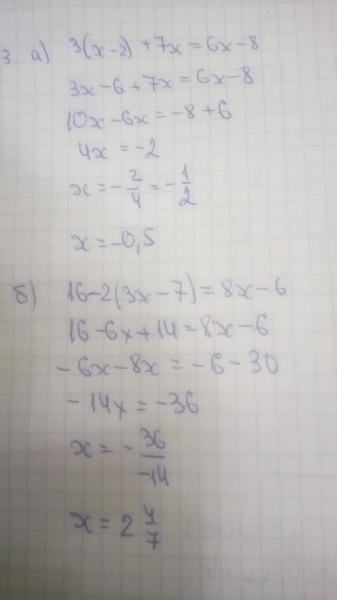 3. а) 3(x-2)+7x=6x-8
3x-6+7x=6x-8
10x-6x=-8+6
4x=-2
x=-2/4=-1/2
x=-0,5
б) 16-2(3x-7)=8x-6
16-6x+14=8x-6
-6x-8x=-6-30
-14x=-36
x=-36/-14
x=2 4/7